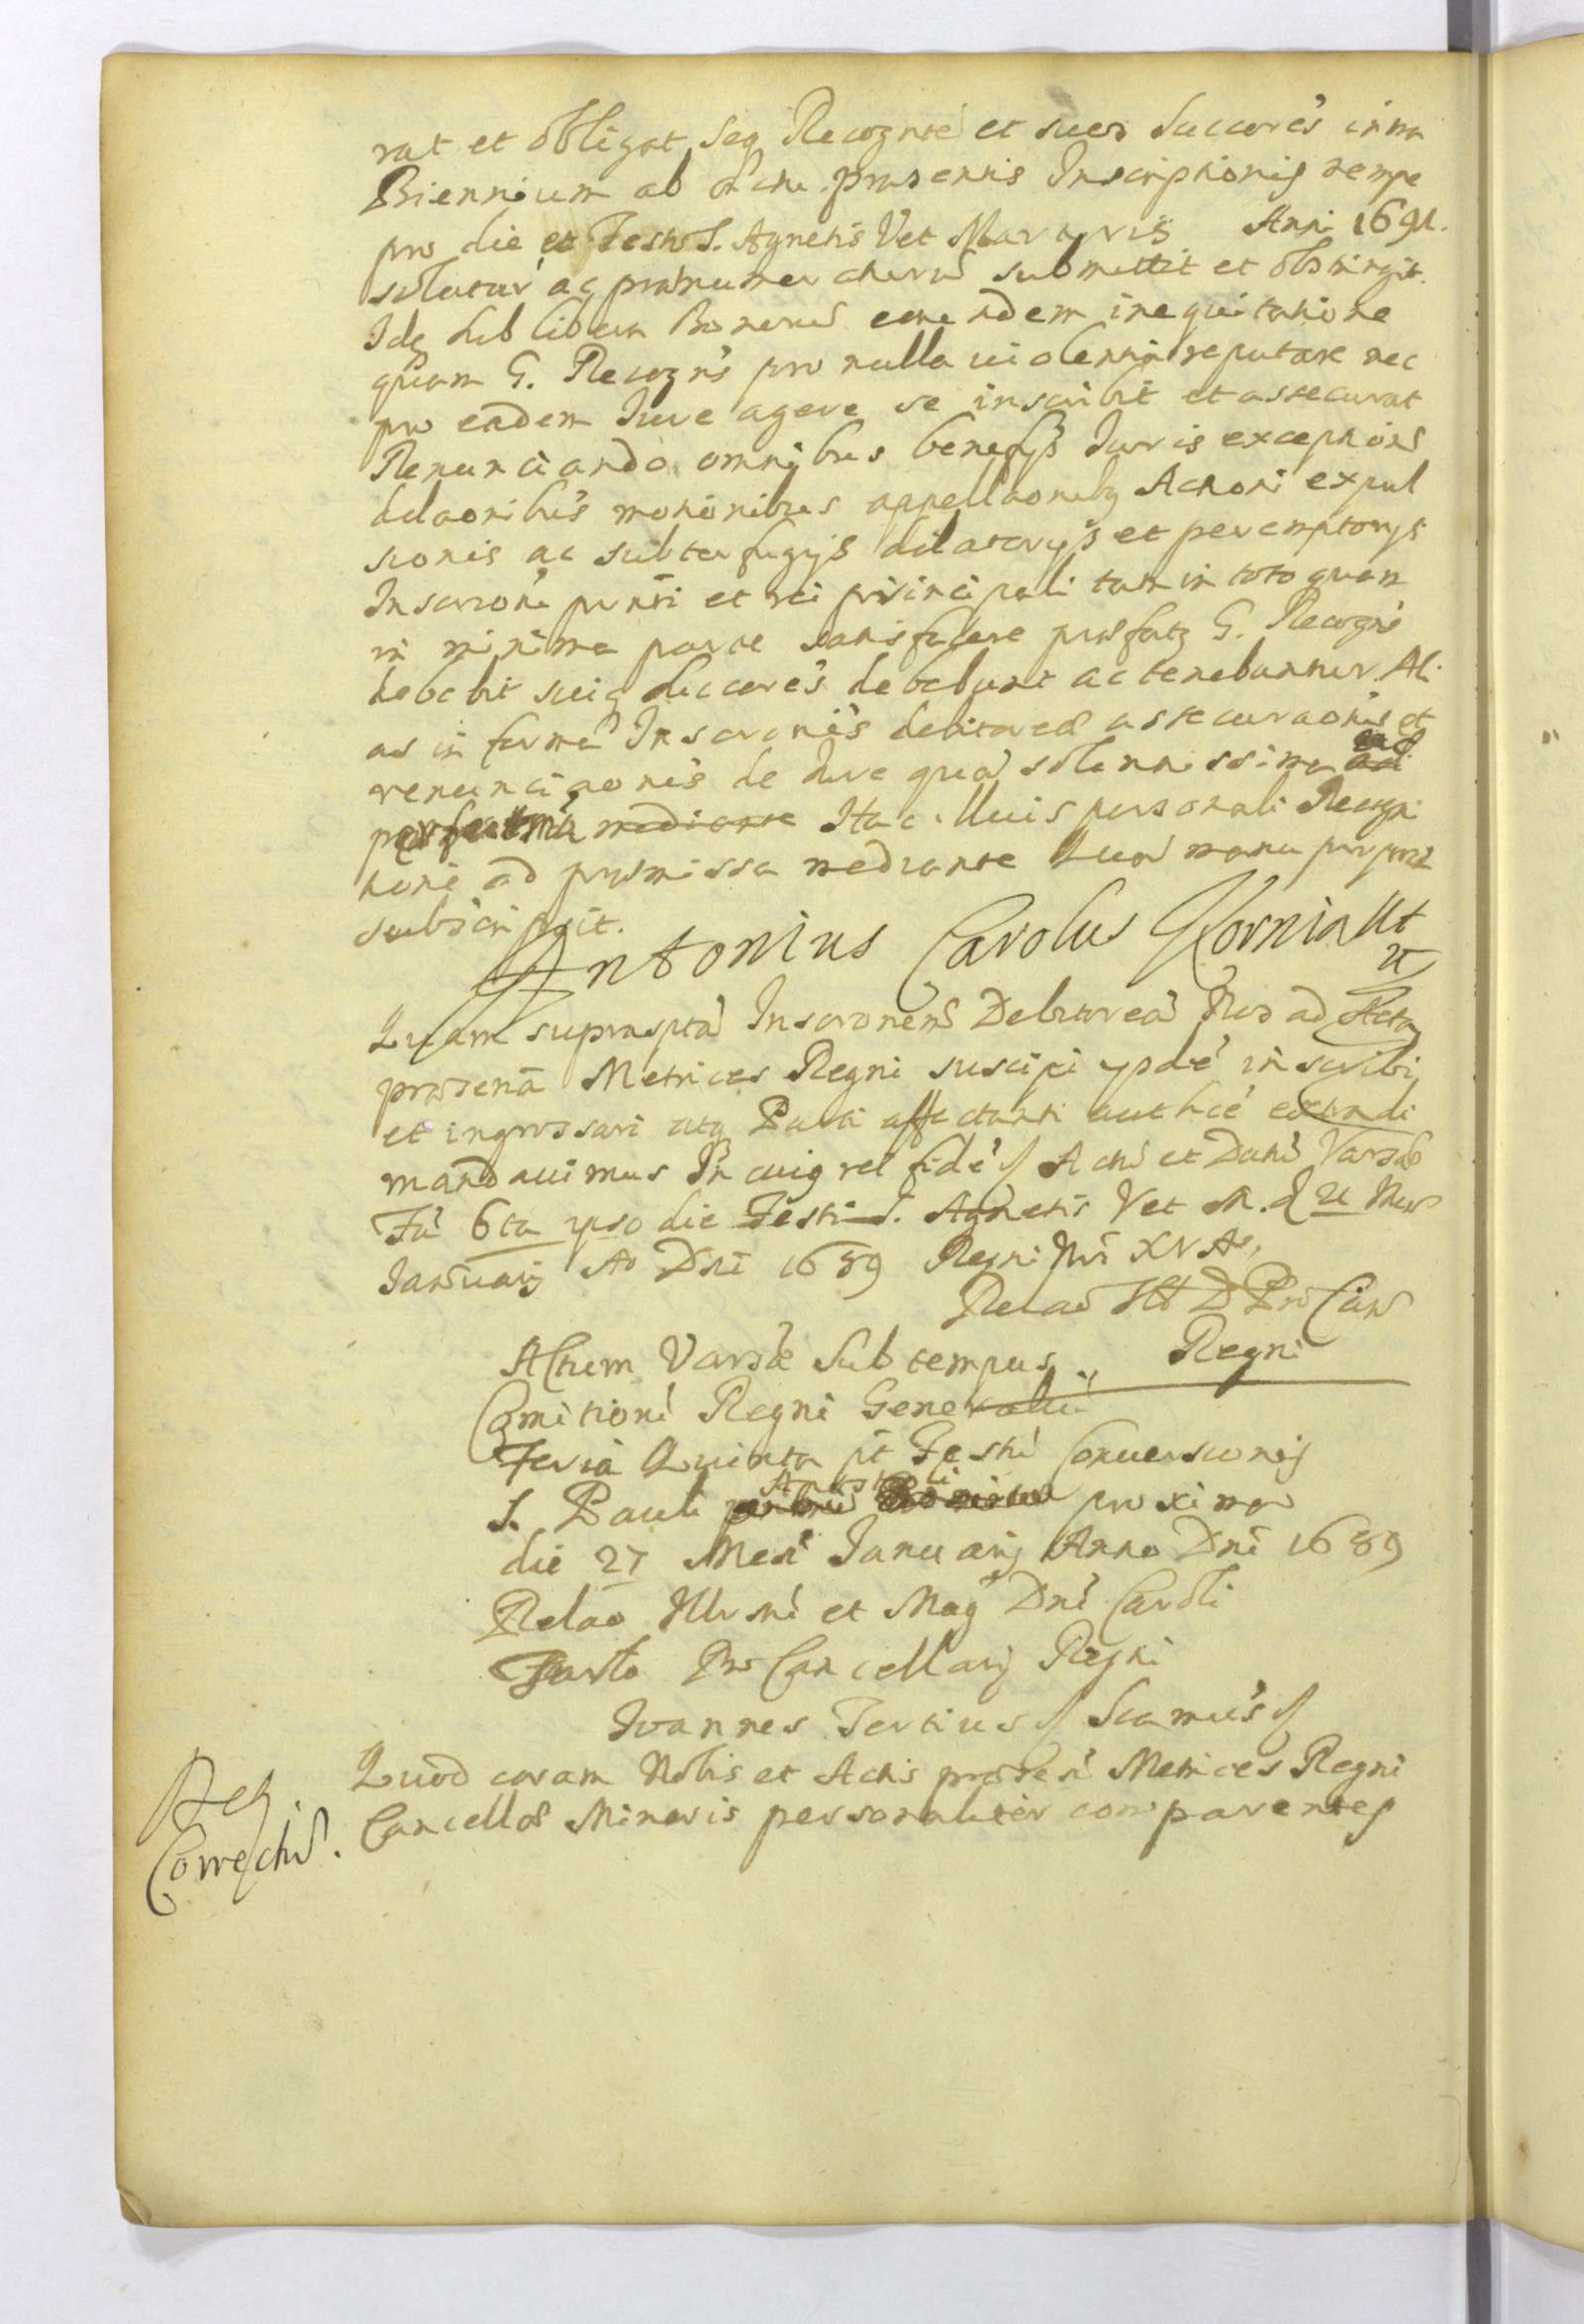 rat et obligat, seq Recognté et suos succores intra
Biennium ab Actu præsentis Inscriptionis nempe
pro die et Festo S. Agnetis V et Martyris Anni 1691.
soluturú ac submittit et obstringit.
Ide sub libera Bonorú eorundem inequitatione
quam G. Recogns pro nulla violentia reputare nec
pro eadem Iure agere se inscribit et assecurat
Renunciando omnibus benefijs Iuris exceptions
dilaonibus motionibus appellaonibq Actioni expul
sionis ac subterfugijs dilatorijs et peremptorijs
Inscrioni pnnti et rei principali tam in toto quam
in minima parte satisfacere præfatq G. Recogns
debebit suiq succores debebunt ac tenebuntur. Ali
as in forma Inscronis debitoreæ assecuraonis et
renunciaonis de Iure quá solennissima
mediante Hac suis personali Recogni
tione ad præmissa mediante Quá manu ppria
subscripsit.
Antonius Carolus Korniakt
Quam suprasptá Inscronem Debitoreá Nos ad Acta
præsentia Metrices Regni suscipi ipsáe inscribi
et ingrossari atq Parti affectanti authcé extradi
mandauimus In cuiq rei fidé // Actú et Datú Varsæ
Fá 6ta ipso die Festi S. Agnetis V et M. d 21 Mens
Ianuarij Ao Dni 1689 Regni Nri XV Ao,
Relaó Ill D Pro Can
Regni
Actum Varsæ Sub tempus
Comitioru Regni Generaliu
Feria Quinta pt Festú Conuersionis
S. Pauli Apostoli proxima
die 27 Mens Ianuarij Anno Dni 1689
Relao Illrsmi et Mag Dni Caroli
Tarlo Pro Cancellarij Regni
Ioannes Tertius // Scamus //
Quod coram Nobis et Actis præsen Metrices Regni
Cancellæ Minoris personaliter comparentes
Reg.
Correctú.